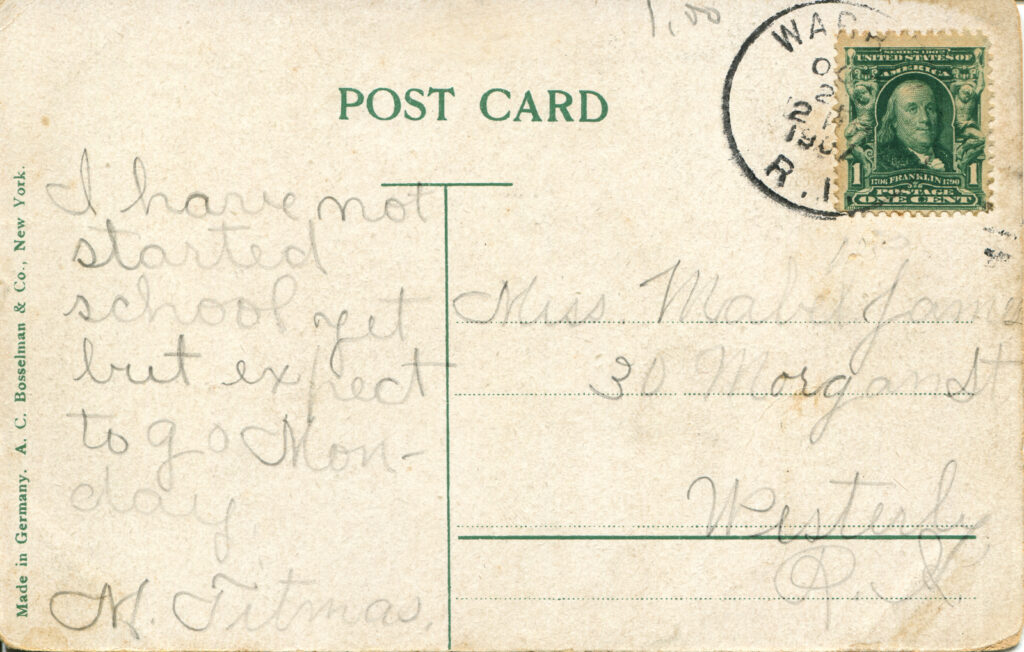 1,
WAR
R.I.
SERIES 1902
UNITED STATES OF
AMERICA
1 1706 FRANKLIN 1790 1
POSTAGE
ONE CENT
POST CARD
I have not
started
school yet
but expect
to go Mon-
day
N. Titmas.
Miss. Mabel James
30 Morgan St
Westerly
R.I.
Made in Germany. A. C. Bosselman & Co., New York.